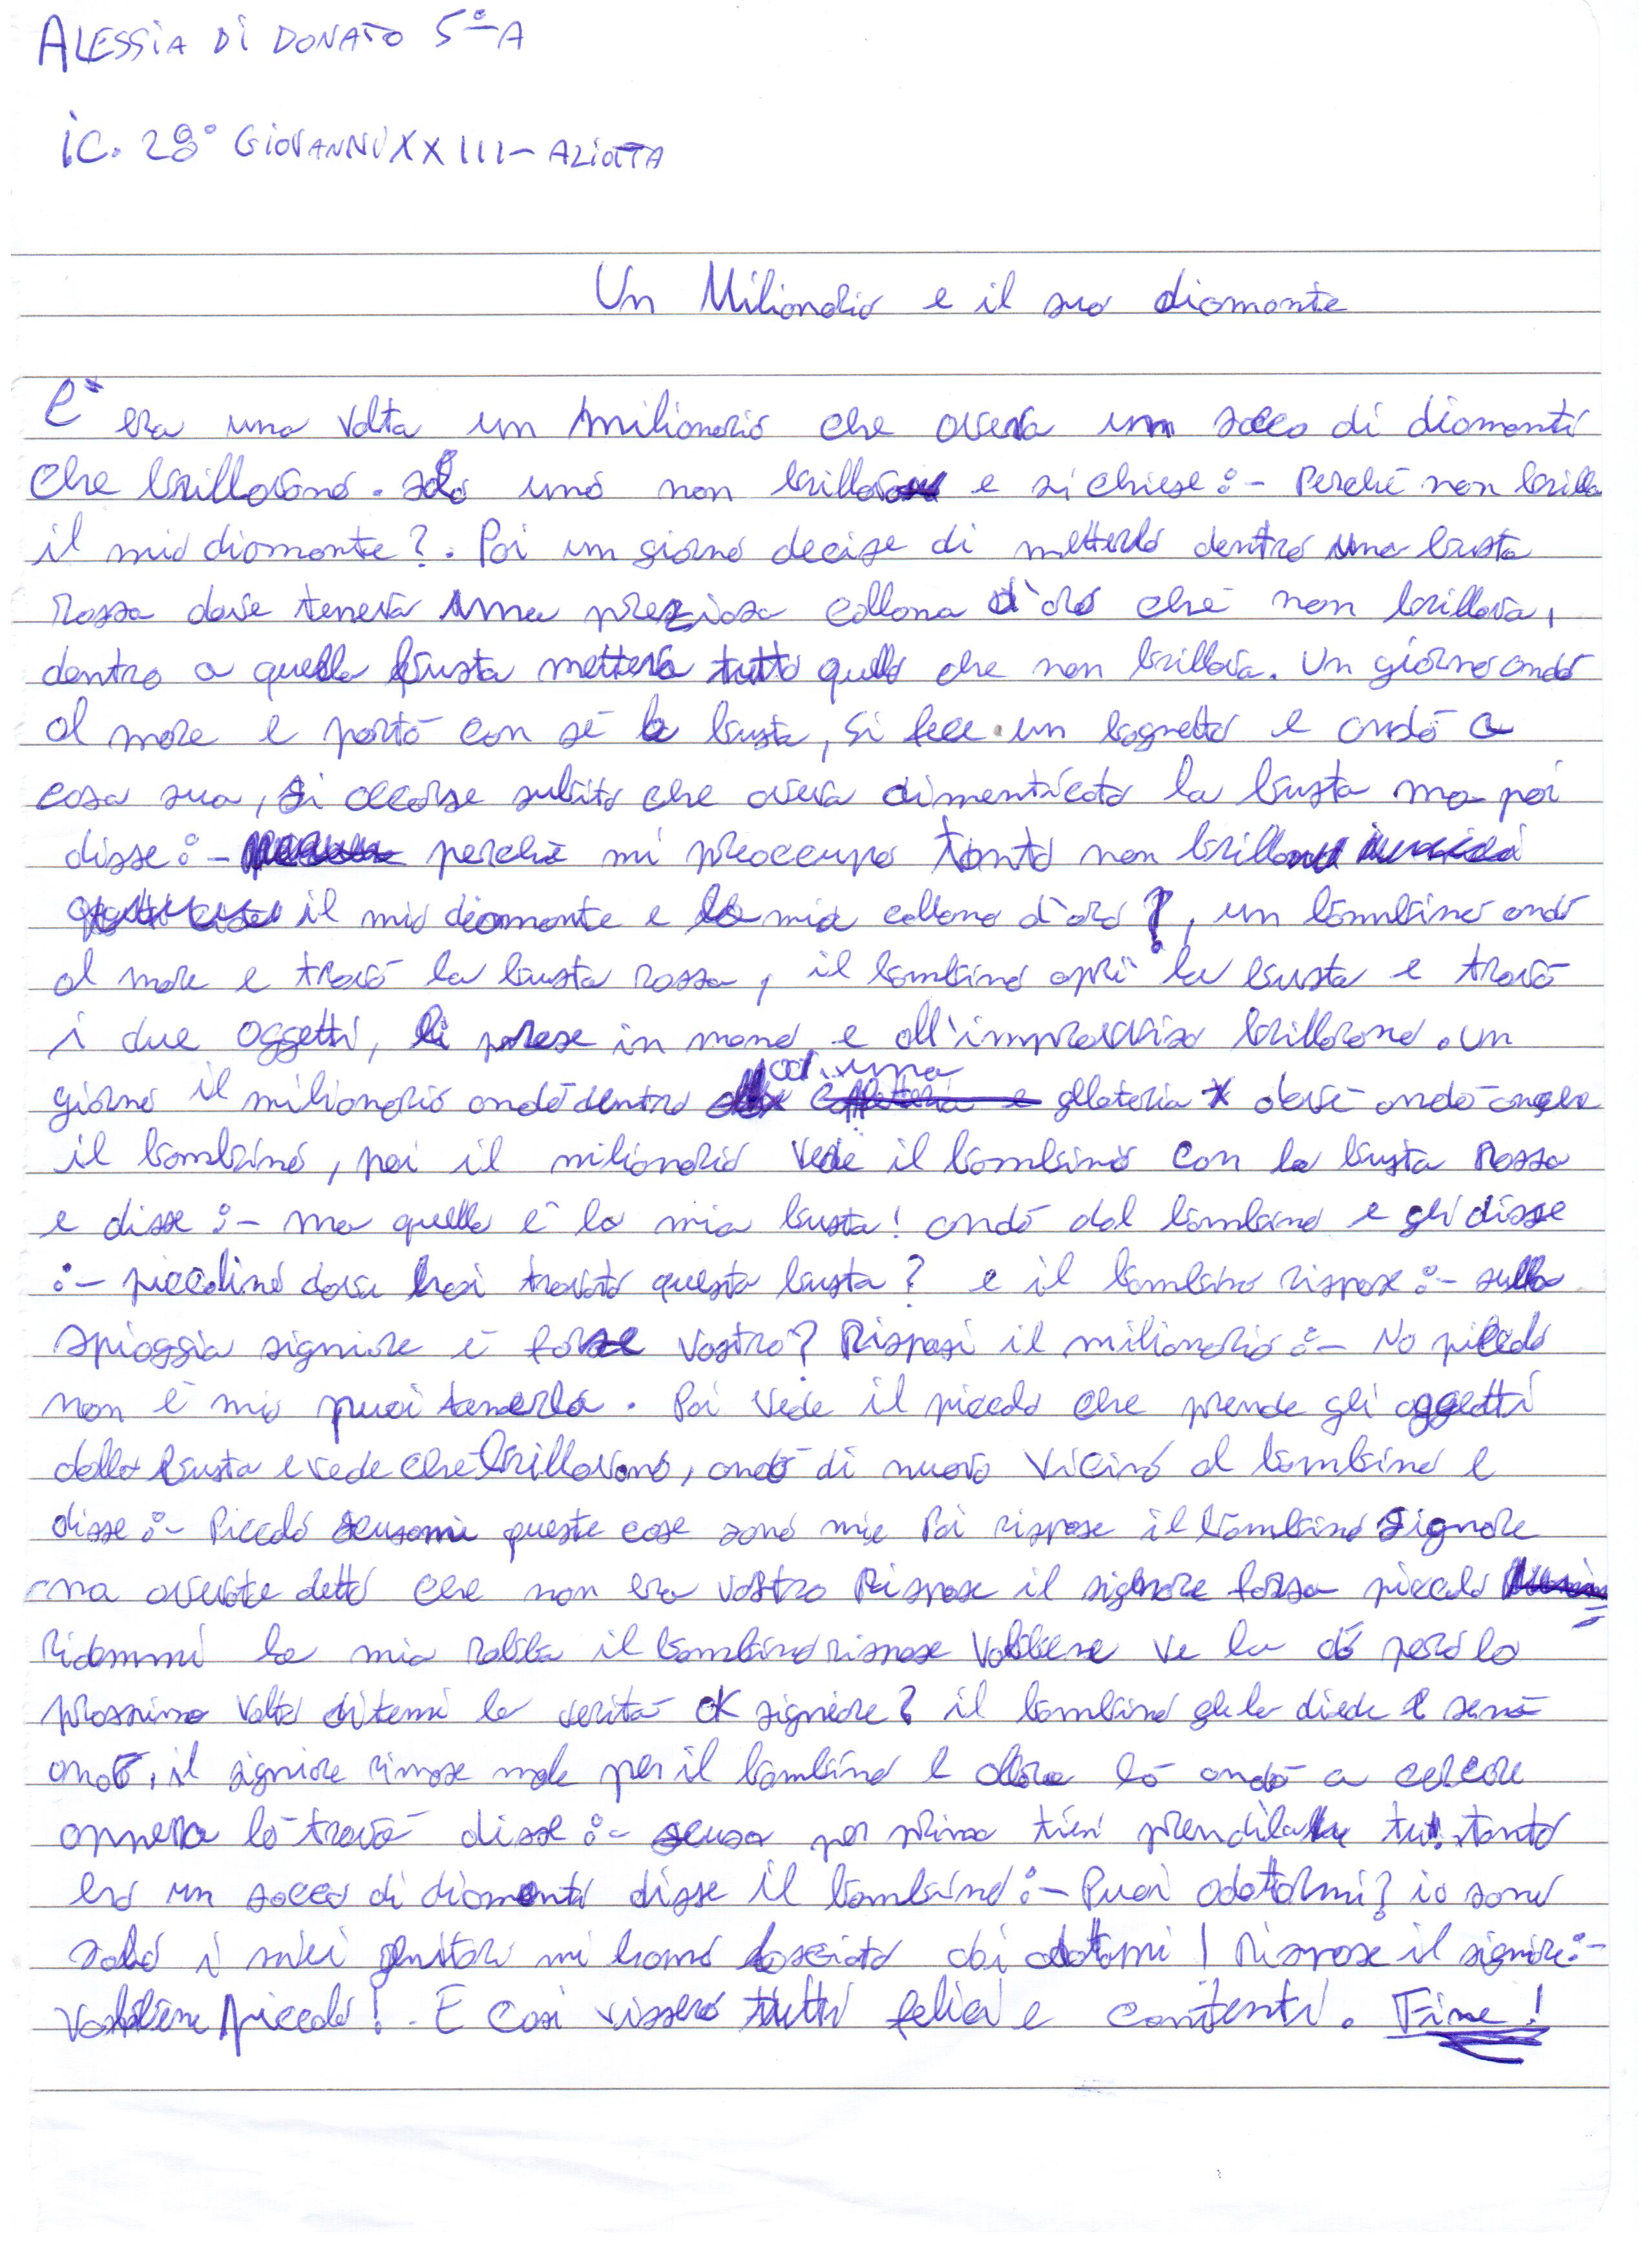 ALESSIA DI DONATO 5ª A
i.C. 28° GIOVANNI XXIII - ALIOTTA
Un Milionario e il suo diamante
C'era una volta un milionario che aveva un sacco di diamanti
che brillavano. solo uno non brillava e si chiese:- Perché non brilla
il mio diamante?. Poi un giorno decise di metterlo dentro una busta
rossa dove teneva una preziosa collana d'oro che non brillava,
dentro a quella busta metteva tutto quello che non brillava. Un giorno andò
al mare e portò con sé la busta, si fece un bagnetto e andò a
casa sua, si accorse subito che aveva dimenticato la busta ma poi
disse:- perché mi preoccupo tanto non brillano
il mio diamante e la mia collana d'oro?, un bambino andò
al mare e trovò la busta rossa, il bambino aprì la busta e trovò
i due oggetti, li prese in mano e all'improvviso brillarono. un
giorno il milionario andò dentro ad una gllateria dove andò anche
il bambino, poi il milionario vede il bambino con la busta rossa
e disse:- ma quella è la mia busta! andò dal bambino e gli disse
:- piccolino dove hai trovato questa busta? e il bambino rispose:- sulla
spiaggia signiore è forse vostro? Risposi il milionario:- No piccolo
non è mio puoi tenerla. Poi vede il piccolo che prende gli oggetti
dalla busta e vede che brillavano, andò di nuovo vicino al bambino e
disse:- Piccolo scusami queste cose sono mie Poi rispose il bambino signore
ma avevate detto che non era vostro Rispose il signore forza piccolo
ridammi la mia robba il bambino rispose Vabbene ve la dò però la
prossima volta ditemi la verità ok signiore? il bambino gliela diede e senò
andò, il signiore rimase male per il bambino e allora lò andò a cercare
appena lò trovò disse:- scusa per prima tieni prendila tu! tanto
ho un sacco di diamanti disse il bambino:- Puoi adottarmi? io sono
solo i miei genitori mi hanno lasciato dai adottami! Rispose il signiore:-
Vabbiene piccolo!. E così vissero tutti felici e contenti. Fine!